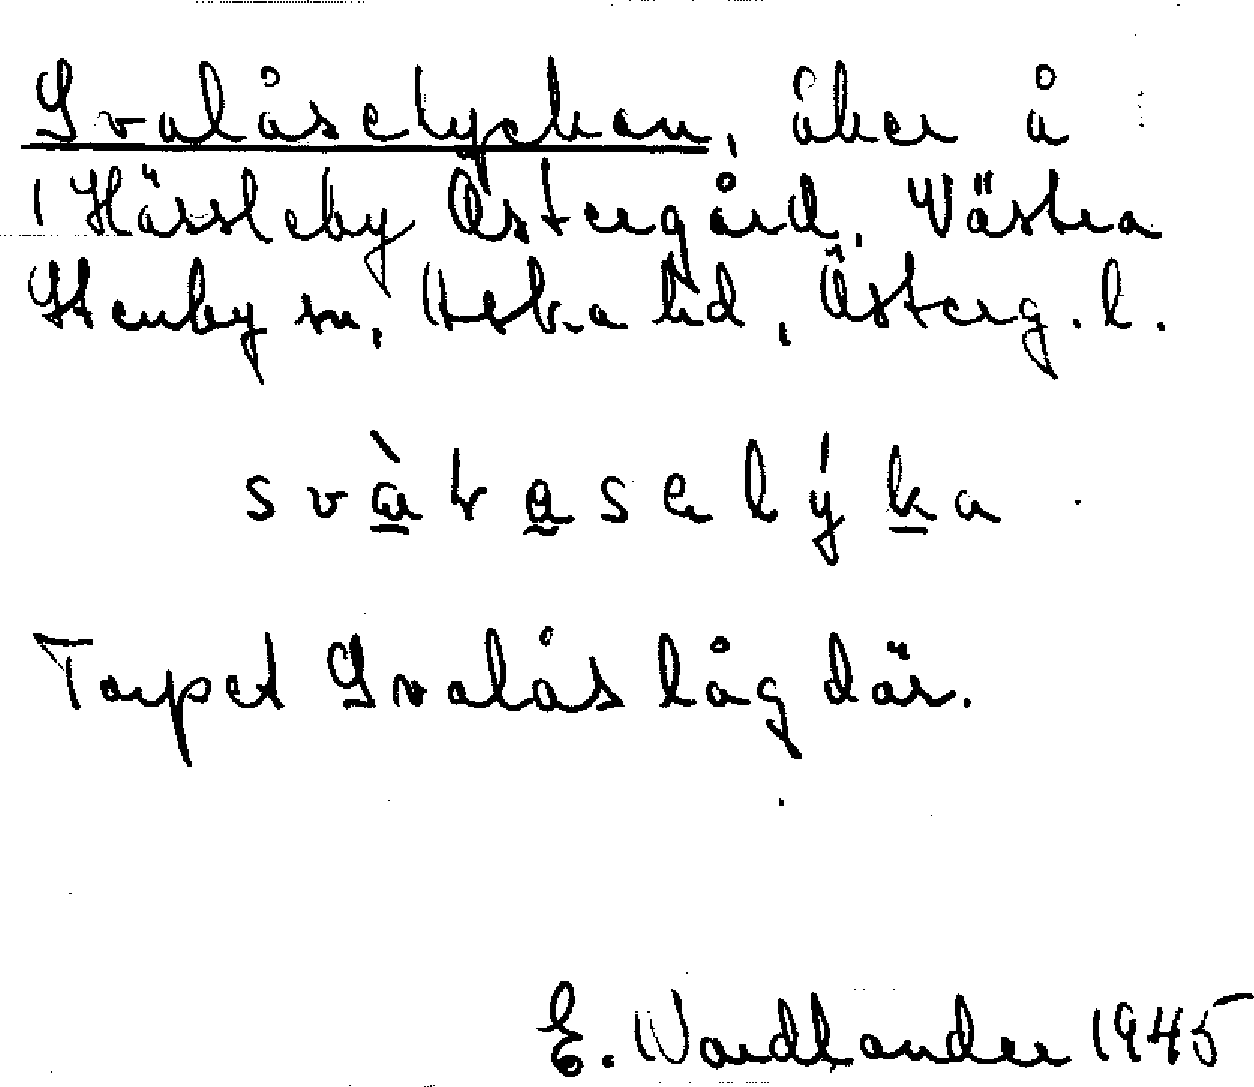 Svalåselyckan, åker å
1 Hässleby Östergård, Västra
Stenby sn, Aska hd, Österg. l.
svàlaselýka
Torpet Svalås låg där.
E. Nordlander 1945